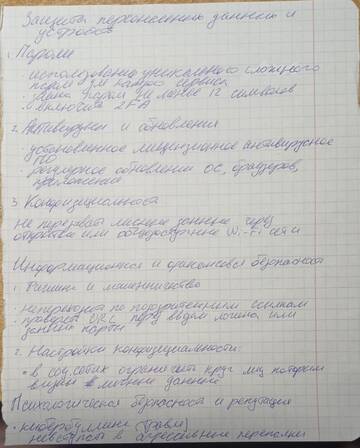 Защита персональных данных и
устройств
1. Пароли
- использование уникального сложного
пароля для каждого сервиса
- длина пароля не менее 12 символов
- включить 2FA
2. Антивирусы и обновления
- установленное лицензионное антивирусное
ПО
- регулярное обновление ОС, браузеров,
приложений
3 Конфиденциальность
не передавать личные данные через
открытые или общедоступные Wi-Fi сети
Информационная и финансовая безопасность
1. Фишинг и мошенничество
- не переходить по подозрительным ссылкам
- проверять URL перед вводом логина или
данных карты
2. Настройки конфиденциальности:
• в соц.сетях ограничить круг лиц которым
видны личные данные
Психологическая безопасность и репутация
- кибербуллинг (травля)
не вступать в агрессивные переписки